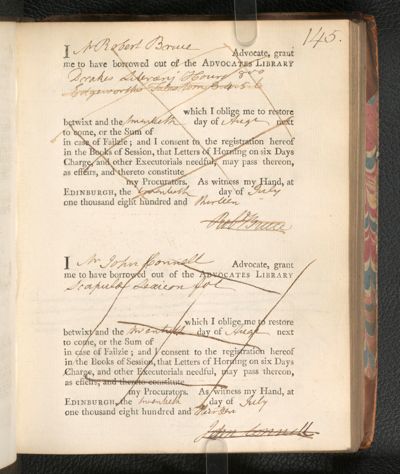 145.
I Mr Robert Bruce Advocate, grant
me to have borrowed out of the ADVOCATES LIBRARY
Drakes Literary Hours 8vo
Edgeworths
which I oblige me to restore
betwixt and the twentieth day of Augt next
to come, or the Sum of
in case of Failzie; and I consent to the registration hereof
in the Books of Session, that Letters of Horning on six Days
Charge, and other Executorials needful, may pass thereon,
as effeirs, and thereto constitute
my Procurators. As witness my Hand, at
EDINBURGH, the twentieth day of July
one thousand eight hundred and thirteen
Robt Bruce
I Mr John Connell Advocate, grant
me to have borrowed out of the ADVOCATES LIBRARY
Scapulas Lexicon fol
which I oblige me to restore
betwixt and the twentieth day of Augt next
to come, or the Sum of
in case of Failzie; and I consent to the registration hereof
in the Books of Session, that Letters of Horning on six Days
Charge, and other Executorials needful, may pass thereon,
as effeirs, and thereto constitute
my Procurators. As witness my Hand, at
EDINBURGH, the twentieth day of July
one thousand eight hundred and thirteen
John Connell